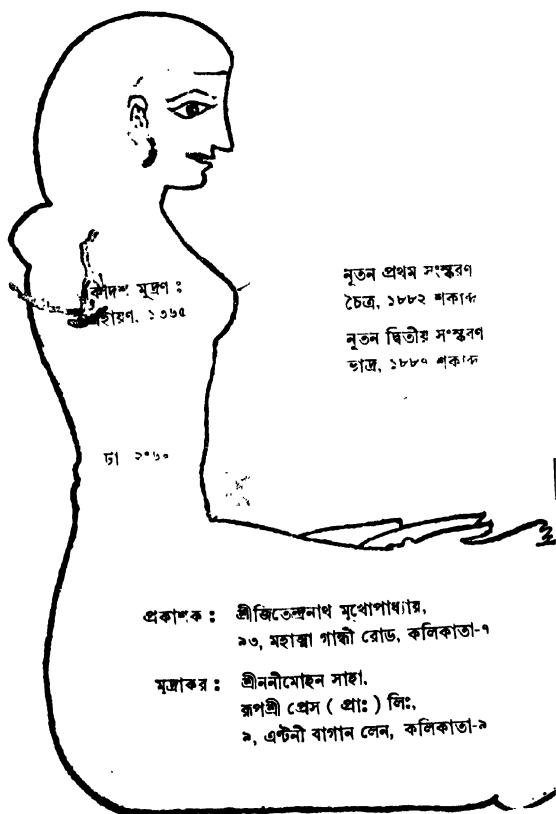 কাদশ মুদ্রণ :
হায়ণ, ১৩৬৫
নূতন প্রথম সংস্করণ
চৈত্র, ১৮৮২ শকাব্দ
নূতন দ্বিতীয় সংস্করণ
ভাদ্র, ১৮৮৭ শকাব্দ
টা ২·৬০
প্রকাশক : শ্রীজিতেন্দ্রনাথ মুখোপাধ্যায়,
৯৩, মহাত্মা গান্ধী রোড, কলিকাতা-৭
মুদ্রাকর : শ্রীননীমোহন সাহা,
রূপশ্রী প্রেস ( প্রাঃ ) লিঃ,
৯, এণ্টনী বাগান লেন, কলিকাতা-৯